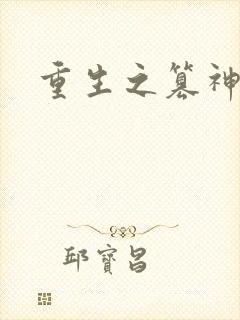 重生之篡神
邱寶昌